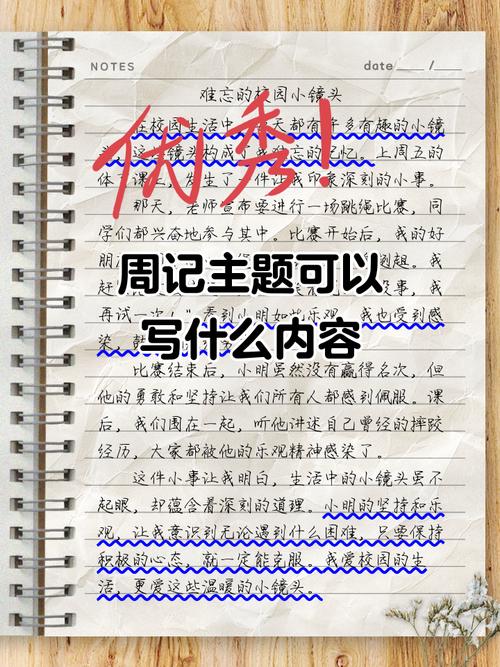 NOTES
date ___ / ___
难忘的校园小镜头
在校园生活中，天都有许多有趣的小镜
头，这些镜头构成了我难忘的记忆。上周五的
体育课上，发生了一件让我印象深刻的小事。
优秀！
那天，老师宣布要进行一场跳绳比赛，同
学们都兴奋地参与其中。比赛开始后，我的好
朋友
周记主题可以
没事，我
再试一次！”看到小明如此乐观，我也受到感
染，
写什么内容
比赛结束后，小明虽然没有赢得名次，但
他的勇敢和坚持让我们所有人都感到佩服。课
后，我们围在一起，听他讲述自己曾经的摔跤
经历，大家都被他的乐观精神感染了。
这件小事让我明白，生活中的小镜头虽不
起眼，却蕴含着深刻的道理。小明的坚持和乐
观，让我意识到无论遇到什么困难，只要保持
积极的心态，就一定能克服。我爱校园的生
活，更爱这些温暖的小镜头。